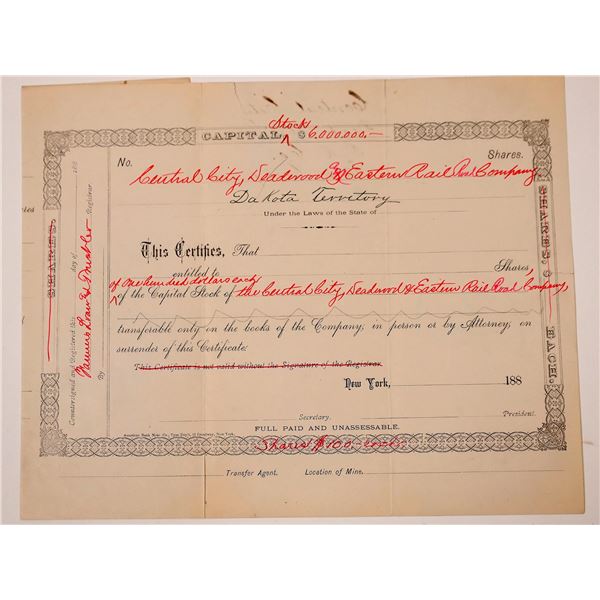 Stock
CAPITAL, $ 6,000,000.—
No.
Shares.
Central City, Deadwood & Eastern Rail Road Company
Dakota Territory
Under the Laws of the State of
This Certifies, That
entitled to
Shares,
of one hundred dollars each
of the Capital Stock of the Central City, Deadwood & Eastern Rail Road Company,
transferable only on the books of the Company, in person or by Attorney, on
surrender of this Certificate.
This Certificate is not valid without the Signature of the Registrar.
New York,
188
Secretary.
President.
FULL PAID AND UNASSESSABLE.
Shares $100.— each.
Transfer Agent.
Location of Mine.
SHARES,
Countersigned and Registered this
day of
188
By
Registrar
SHARES, $
EACH.